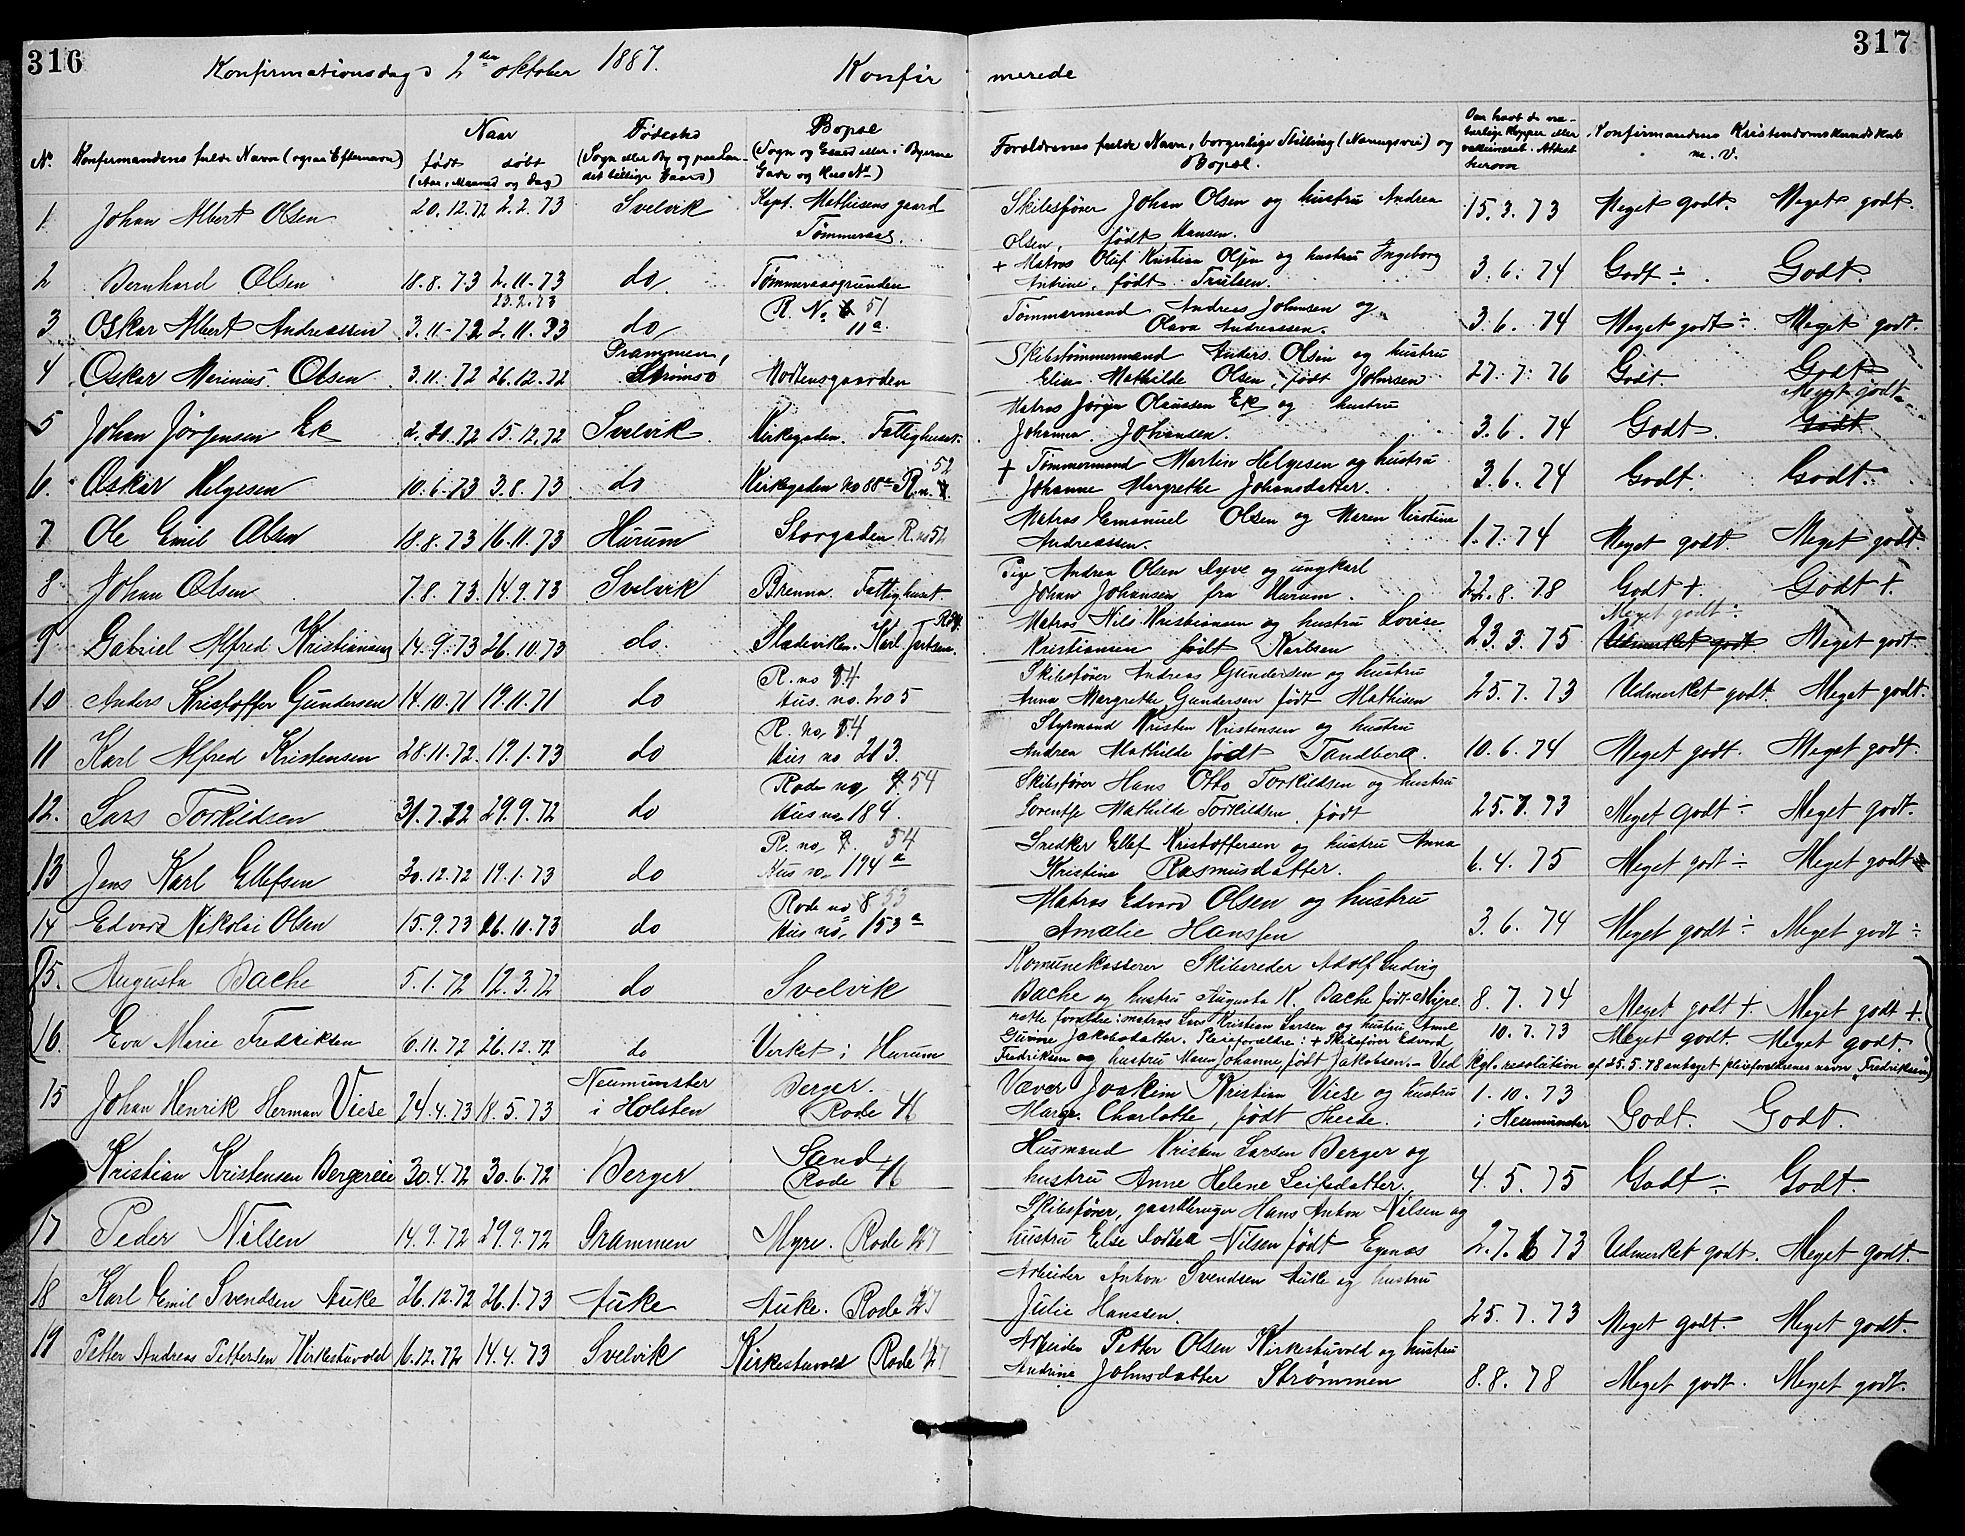 316
317
Konfirmationsdag d 2den oktober 1887.
Konfir merede
Nr. Konfirmandens fulde Navn (ogsaa Efternavn) Naar født døbt (Aar, Maaned og Dag) Fødested (Sogn eller By og paa Landet tillige Gaard) Bopæl (Sogn og Gaard eller i Byerne Gade og Hus No) Forældrenes fulde Navn, borgerlige Stilling (Næringsvei) og Bopæl. Om havt de naturlige Kopper eller vaccineret. Attest herom Konfirmandens Kristendomskundskab m. v.
1 Johan Albert Olsen 20.12.72 2.2.73 Svelvik Kapt. Mathisens gaard Skibsfører Johan Olsen og hustru Andrea 15.3.73 Meget godt. Meget godt.
Tømmeraas. Olsen, født Hansen.
2 Bernhard Olsen 18.8.73 2.11.73 do Tømmeraasgrunden + Matros Oluf Kristian Olsen og hustru Ingeborg 3.6.74 Godt ÷. Godt.
Antrine, født Trulsen.
23.2.73 R. No 51 Tømmermand Andreas Johnsen og
3 Oskar Albert Andreassen 3.11.72 2.11.73 do 11a. Olava Andreassen. 3.6.74 Meget godt ÷ Meget godt.
4 Oskar Marinius Olsen 3.11.72 26.12.72 Drammen, Strømsø Mostensgaarden Skibstømmermand Anders Olsen og hustru 27.7.76 Godt. Godt
Elin Mathilde Olsen, født Johnsen
Meget godt
5 Johan Jørgensen Ek 2.10.72 15.12.72 Svelvik Kirkegaden. Fattighuset. Matros Jørgen Olaussen Ek og hustru 3.6.74 Godt. Godt
Johanna Johansen.
6. Oskar Helgesen 10.6.73 3.8.73 do Kirkegaden no 88a R.n. 52 + Tømmermand Martin Helgesen og hustru 3.6.74 Godt. Godt.
Johanne Margrethe Johansdatter.
7 Ole Emil Olsen 18.8.73 16.11.73 Hurum Storgaden R.n 52 Matros Emanuel Olsen og Maren Kirstine 1.7.74 Meget godt. Meget godt
Andreassen.
8 Johan Olsen 7.8.73 14.9.73 Svelvik Brenna. Fattighuset Pige Andrea Olsen Dyve og ungkarl 22.8.78 Godt + Godt +.
Johan Johansen fra Hurum.
Meget godt ÷
9 Gabriel Alfred Kristiansen 14.9.73 26.10.73 do. Stadeviken. Karl Matros Nils Kristiansen og hustru Lovise 23.3.75 Udmerket godt Meget godt.
Kristiansen født Karlsen
10 Anders Kristoffer Gundersen 14.10.71 19.11.71 do R. no 54 Skibsfører Andreas Gundersen og hustru 25.7.73 Udmerket godt. Meget godt.
Hus. no. 205 Anna Margrethe Gundersen født Mathisen
11 Karl Alfred Kristensen 28.11.72. 19.1.73 do R. no 54 Styrmand Kristen Kristensen og hustru 10.6.74 Meget godt. Meget godt.
Hus no 213. Andrea Mathilde født Tandberg.
12. Lars Torkildsen 31.7.72 29.9.72 do Rode no, 54 Skibsfører Hans Otto Torkildsen og hustru 25.7.73 Meget godt ÷ Meget godt.
Hus no 184. Lorentse Mathilde Torkildsen, født
13 Jens Karl Ellefsen 30.12.72 19.1.73 do R. no 54 Snedker Ellef Kristoffersen og hustru Anna 6.4.75 Meget godt ÷ Meget godt
Hus no 194a Kristine Rasmusdatter.
14 Edvard Nikolai Olsen 15.9.73 26.10.73 do Rode no 53 Matros Edvard Olsen og hustru 3.6.74 Meget godt ÷ Meget godt ÷
Hus no 153a Amalie Hanssen
15. Augusta Bache 5.1.72 12.3.72 do Svelvik Komunekasserer Skibsreder Adolf Ludvig
Bache og hustru Augusta K. Bache født Myre. 8.7.74 Meget godt +. Meget godt +.
16. Eva Marie Fredriksen 6.11.72 26.12.72 do Verket i Hurum rette forældre: matros Lars Kristian Larsen og hustru Anne 10.7.73 Meget godt. Meget godt.
Gunne Jakobsdatter. Pleieforældre: + Skibsfører Edvard
Fredriksen og hustru Maren Johanne, født Jakobsen. – Ved kgl. resolution af 25.5.78 antaget pleieforældrenes navn "Fredriksen")
15 Johan Henrik Herman Viese 24.4.73 18.5.73 Neumünster i Holsten Berger. Rode 46 Væver Joakim Kristian Viese og hustru 1.10.73 i Neumünster Godt. Godt.
Marga. Charlotte, født Heede.
Kristian Kristensen Bergereie 30.4.72 30.6.72 Berger Sand Rode 46 Husmand Kristen Larsen Berger og 4.5.75 Godt ÷ Godt.
hustru Anne Helene Leifsdatter.
17 Peder Nilsen 14.9.72 29.9.72 Drammen Myre. Rode 47 Skibsfører, gaardbruger Hans Anton Nilsen og 2.7.73 Udmerket godt. Meget godt.
hustru Else Nilsen født Eknæs
18 Karl Emil Svendsen Auke 26.12.72 26.1.73 Auke Auke. Rode 47 Arbeider Anton Svendsen Auke og hustru 25.7.73 Meget godt. Meget godt.
Julie Hanssen.
19 Petter Andreas Pettersen Kirkestuvold 16.12.72 14.4.73 Svelvik Kirkestuvold Rode 47 Arbeider Petter Olsen Kirkestuvold og hustru 8.8.78 Meget godt. Meget godt.
Andrine Johnsdatter Strømmen